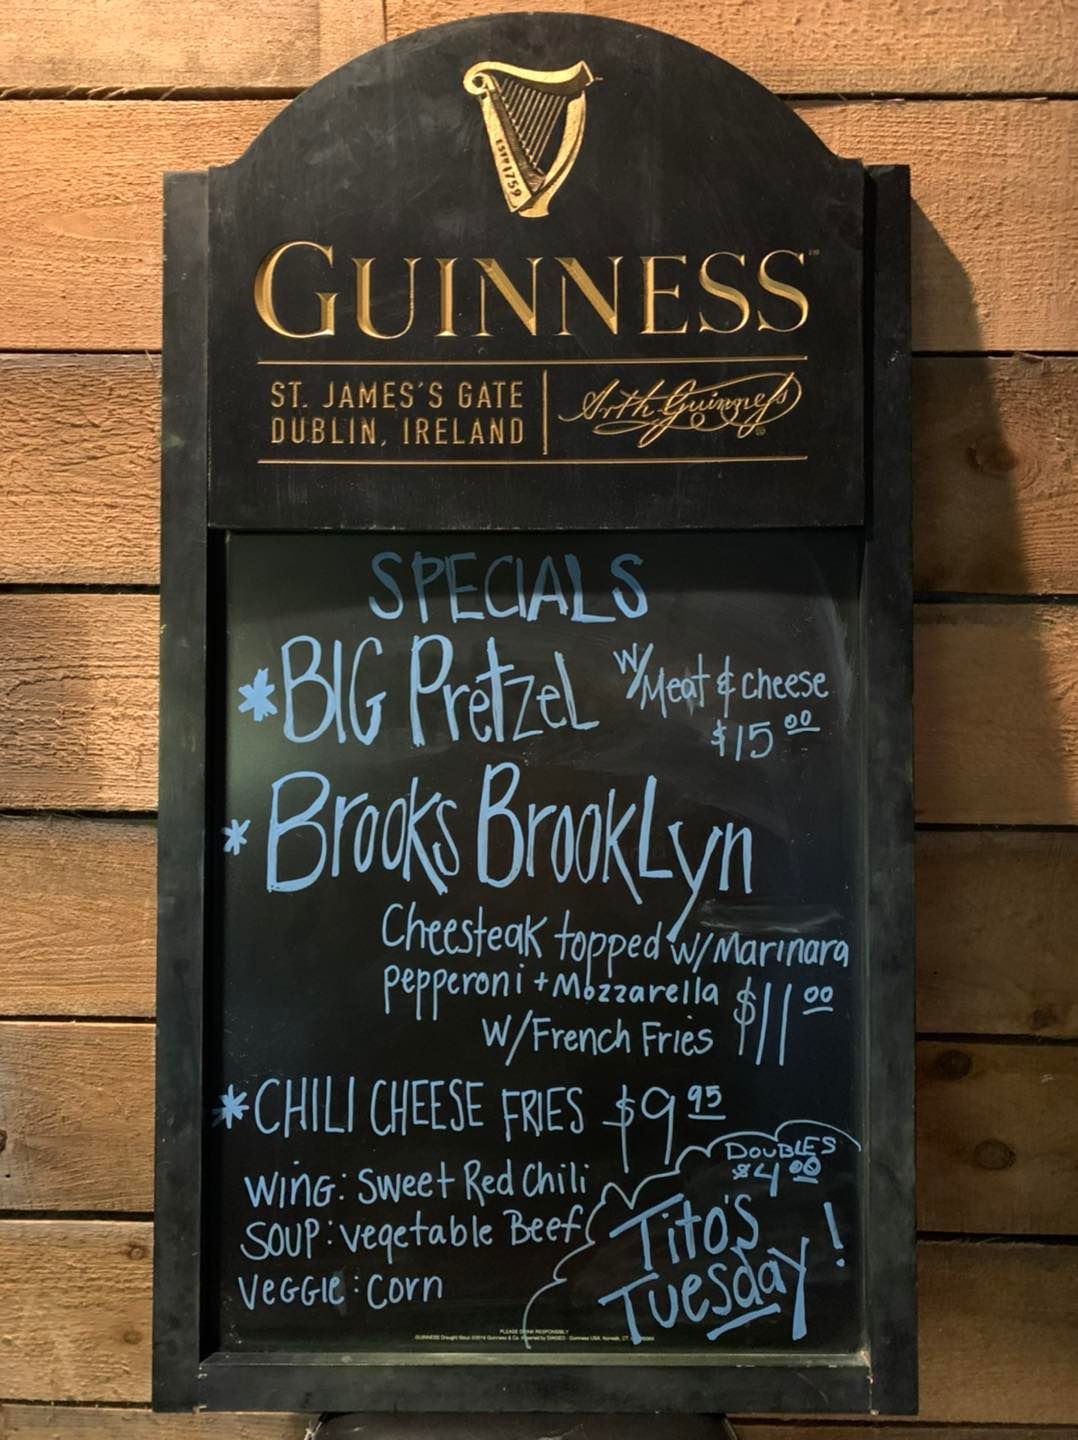 ESTD 1759
GUINNESS™
ST. JAMES'S GATE
DUBLIN, IRELAND
Arth. Guinness ®
SPECIALS
*BIG PretzeL w/Meat & cheese
$15 00
* Brooks BrookLyn
Cheesteak topped w/Marinara
pepperoni + Mozzarella $11 00
w/French Fries
*CHILI CHEESE FRIES $9 95
DOUBLES
$4 00
WING: Sweet Red Chili
SOUP: vegetable Beef
VEGGIE: Corn
Tito's
Tuesday!
PLEASE DRINK RESPONSIBLY